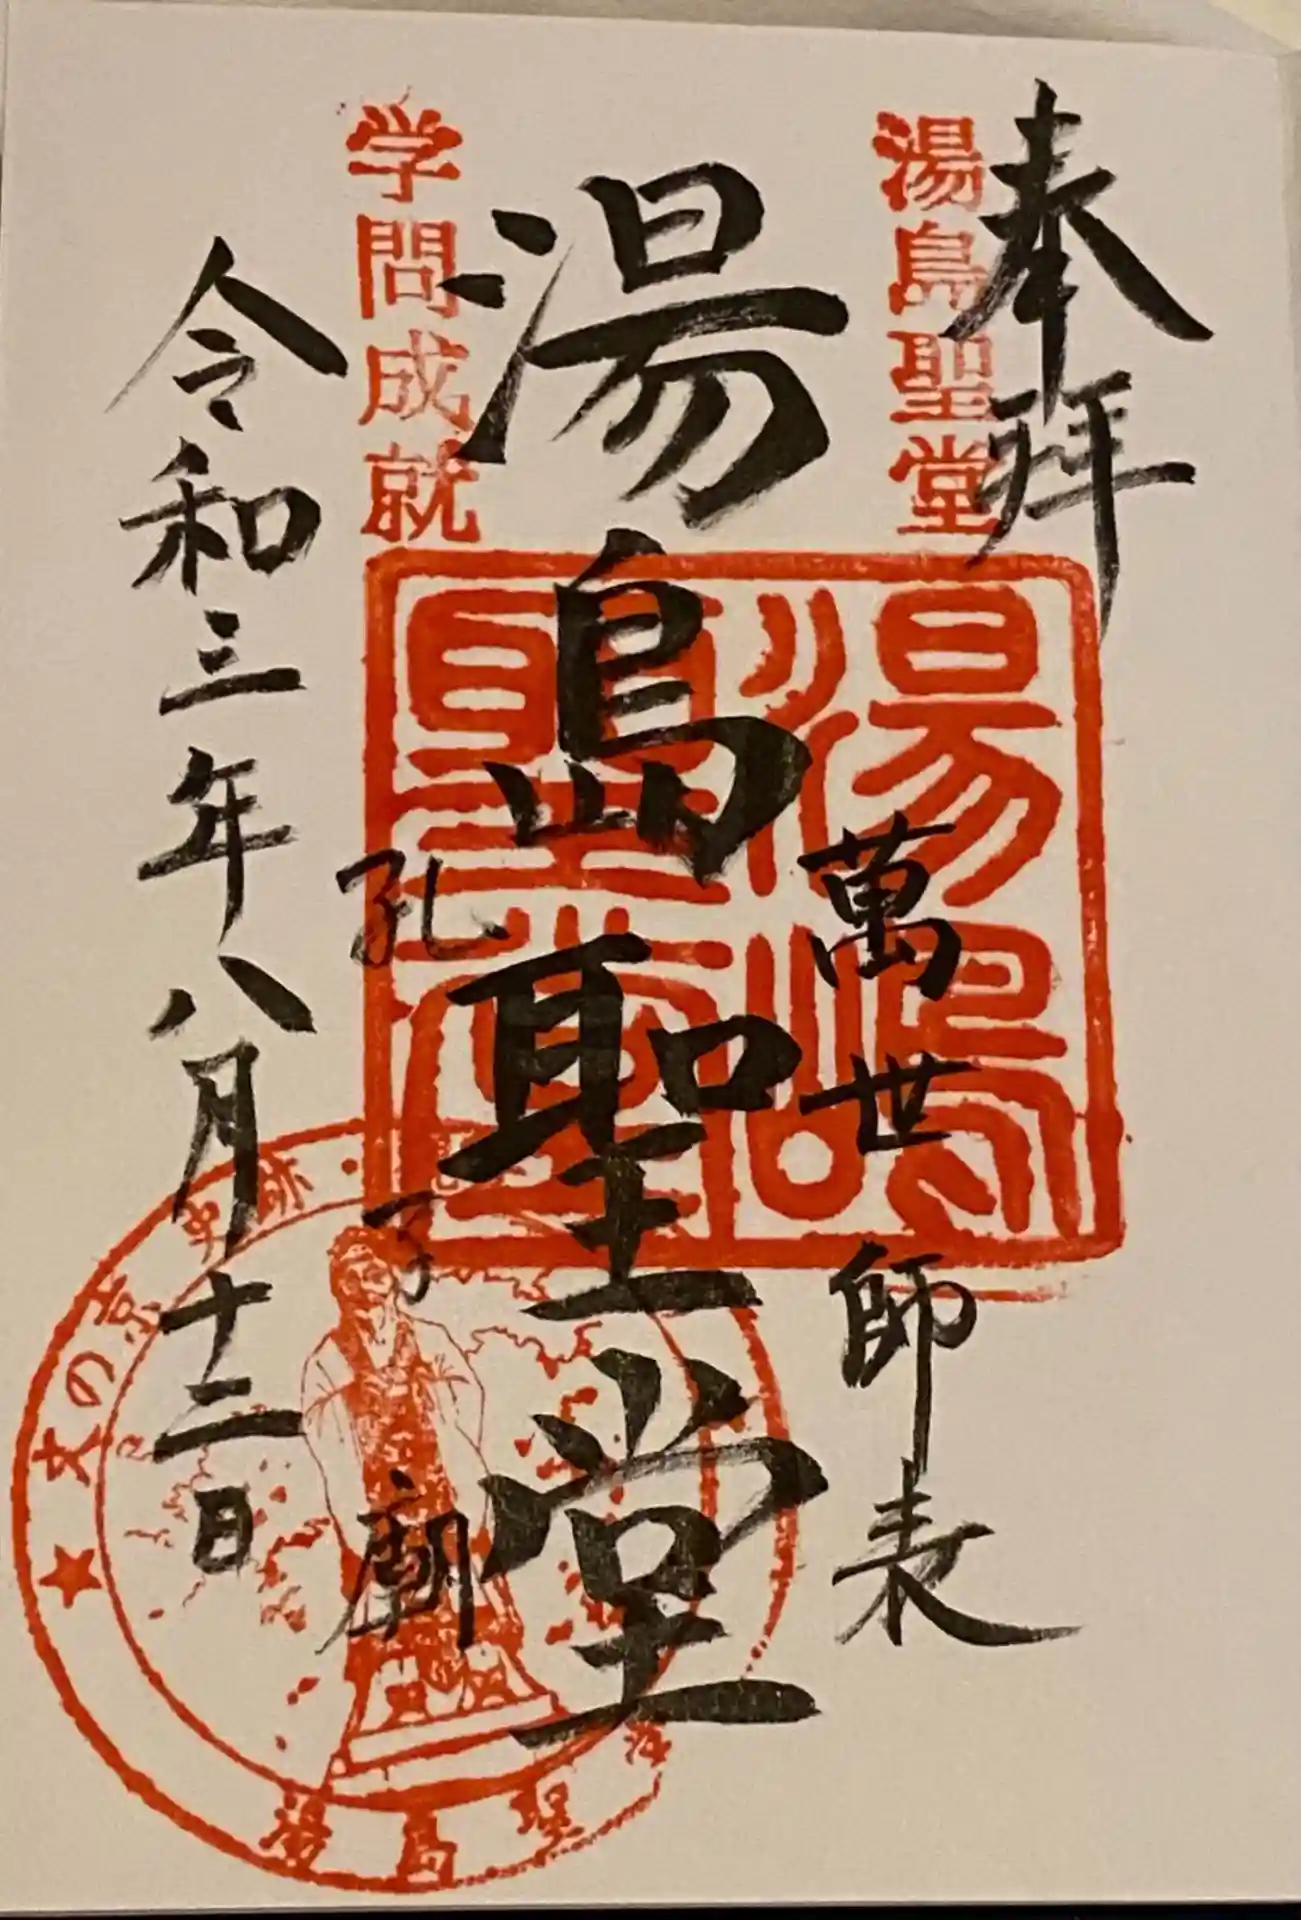 奉拝
湯島聖堂
萬世師表
湯嶋聖堂
湯島聖堂
学問成就
孔子廟
令和三年八月十二日
文の京
湯島聖